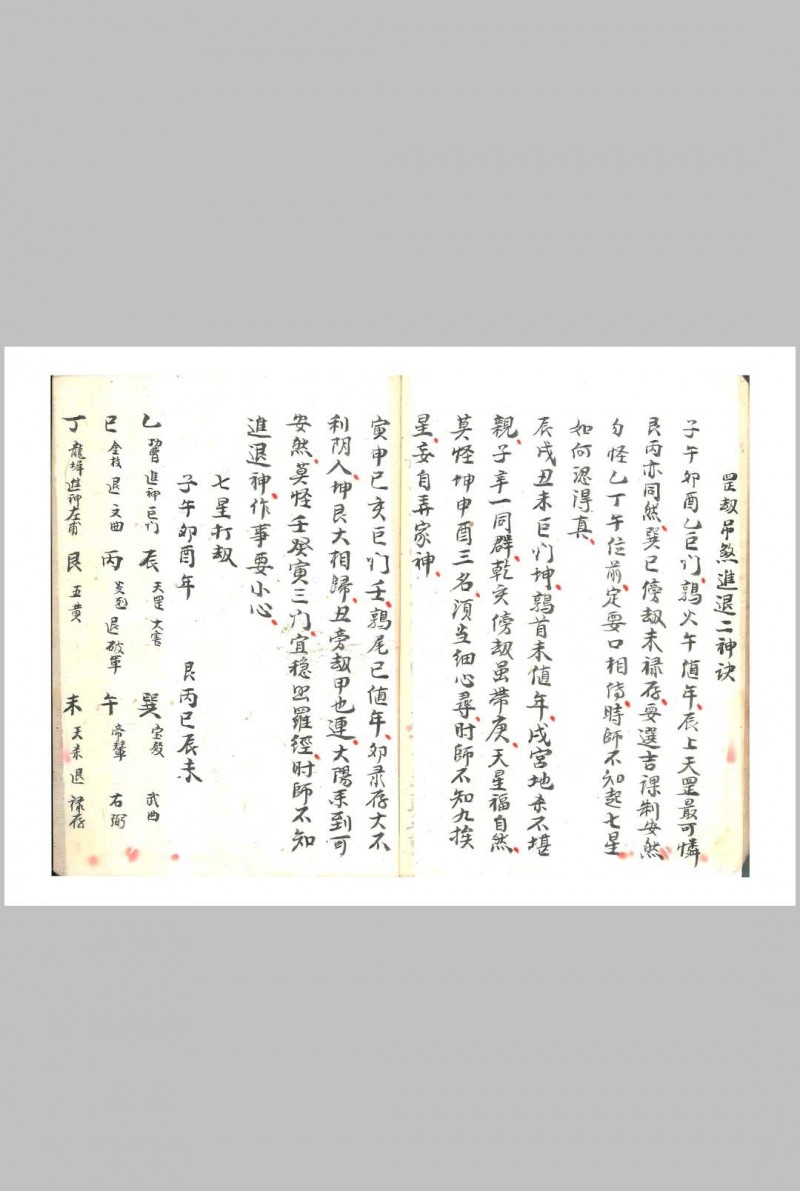 罡劫吊煞進退二神訣
子午卯酉乙巨门鶉火午值年辰上天罡最可憐
艮丙亦同然巽巳傍劫未禄存要選吉課制安然
勿怪乙丁午位前定要口相傳時師不知起七星
如何認得真
辰戌丑未巨门坤鶉首未值年戌宮地杀不堪
親子辛一同群乾亥傍劫虽带庚天星福自然
莫怪坤申酉三名須当细心尋时師不知九挨
星妄自弄家神
寅申巳亥巨门壬鶉尾巳值年卯禄存大不
利阴人坤艮大相歸丑旁劫甲也連太陽系到可
安然莫怪壬癸寅三门宜稳罗經时師不知
進退神作事要小心
七星打劫
子午卯酉年 艮丙巳辰未
乙 進神巨门 辰 天罡大害 巽 武曲
巳 金枝退文曲 丙 炎烈退破軍 午 帝輦右弼
丁 龍墀進神左甫 艮 五黄 未 天杀退禄存